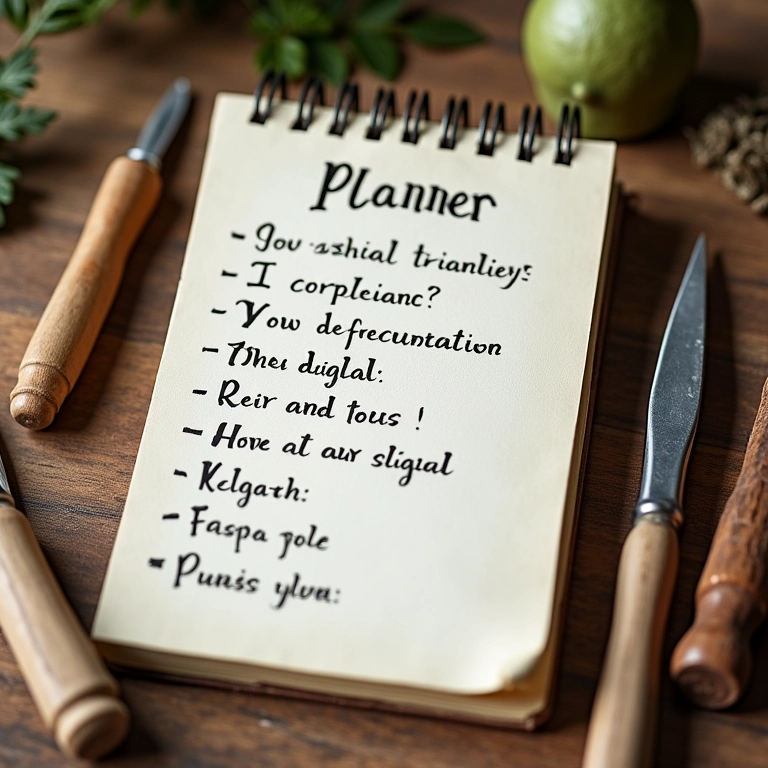 Planner
- gou ashial trianlieys
- I corpleianc?
- Yow defrecuntation
- Theu duglal:
- Reir and tous !
- Hove at aur sligial
- Kelgath:
- Faspa pole
- Punis ylva: